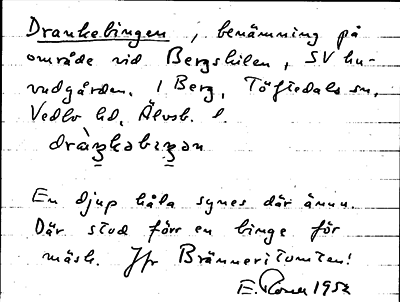 Drankebingen, benämning på
område vid Bergskilen, SV hu-
vudgården. 1 Berg, Töftedals sn,
Vedbo hd, Älvsb. l.
drànkebiŋən
En djup håla synes där ännu.
Där stod förr en binge för
mäsk. Jfr Bränneritomten!
E. 1952